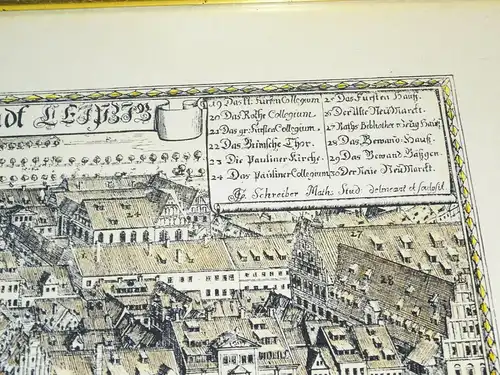 adt LEIPZIG
19 Das kl. Fürsten Collegium
20 Das Rothe Collegium
21 Das gr: Fürsten Collegium.
22 Das Grimische Thor.
23 Die Pauliner Kirche.
24 Das Pauliner Collegium
25 Das Fürsten Hauß.
26 Der Alte Neü Marckt.
27 Raths Bibliothec u: Zeüg Hauß
28 Das Gewand-Hauß.
29 Das Gewand Gäßgen.
30 Der Neüe Neü Marckt.
Schreiber Math. Stud delineavit et sculpsit.
27
28